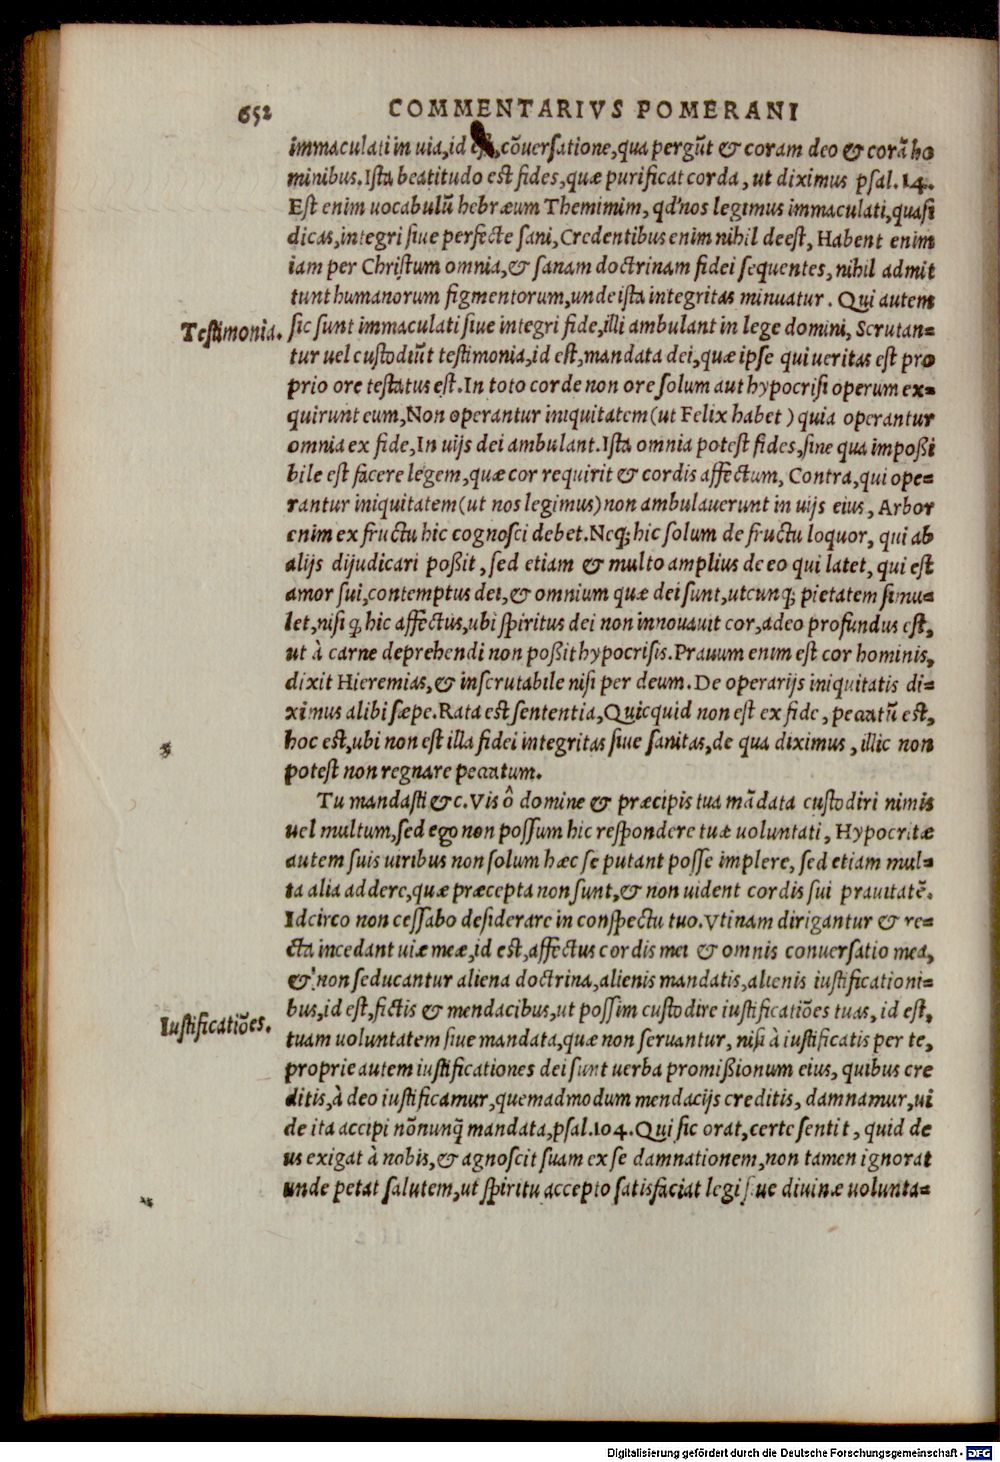 652 COMMENTARIVS POMERANI
immaculati in uia,id est,cõuersatione,qua pergũt & coram deo & corã ho
minibus.Ista beatitudo est fides,quæ purificat corda, ut diximus psal.14.
Est enim uocabulũ hebræum Themimim, qd' nos legimus immaculati,quasi
dicas,integri siue perfecte sani,Credentibus enim nihil deest, Habent enim
iam per Christum omnia,& sanam doctrinam fidei sequentes, nihil admit
tunt humanorum figmentorum,unde ista integritas minuatur. Qui autem
Testimonia. sic sunt immaculati siue integri fide,illi ambulant in lege domini, Scrutan=
tur uel custodiũt testimonia,id est,mandata dei,quæ ipse qui ueritas est pro
prio ore testatus est.In toto corde non ore solum aut hypocrisi operum ex=
quirunt eum,Non operantur iniquitatem(ut Felix habet) quia operantur
omnia ex fide,In uijs dei ambulant.Ista omnia potest fides,sine qua impoßi
bile est facere legem,quæ cor requirit & cordis affectum, Contra,qui ope=
rantur iniquitatem(ut nos legimus)non ambulauerunt in uijs eius, Arbor
enim ex fructu hic cognosci debet.Neq; hic solum de fructu loquor, qui ab
alijs dijudicari poßit, sed etiam & multo amplius de eo qui latet, qui est
amor sui,contemptus dei,& omnium quæ dei sunt,utcunq; pietatem simu=
let,nisi q hic affectus,ubi spiritus dei non innouauit cor,adeo profundus est,
ut à carne deprehendi non poßit hypocrisis.Prauum enim est cor hominis,
dixit Hieremias,& inscrutabile nisi per deum.De operarijs iniquitatis di=
ximus alibi sæpe.Rata est sententia,Quicquid non est ex fide, peccatũ est,
hoc est,ubi non est illa fidei integritas siue sanitas,de qua diximus, illic non
potest non regnare peccatum.
Tu mandasti &c.Vis ô domine & præcipis tua mãdata custodiri nimis
uel multum,sed ego non possum hic respondere tuæ uoluntati, Hypocritæ
autem suis uiribus non solum hæc se putant posse implere, sed etiam mul=
ta alia addere,quæ præcepta non sunt,& non uident cordis sui prauitatẽ.
Idcirco non cessabo desiderare in conspectu tuo.Vtinam dirigantur & re=
cta incedant uiæ meæ,id est,affectus cordis mei & omnis conuersatio mea,
& non seducantur aliena doctrina,alienis mandatis,alienis iustificationi=
bus,id est,fictis & mendacibus,ut possim custodire iustificatiões tuas, id est,
Iustificatiões. tuam uoluntatem siue mandata,quæ non seruantur, nisi à iustificatis per te,
proprie autem iustificationes dei sunt uerba promißionum eius, quibus cre
ditis,à deo iustificamur,quemadmodum mendacijs creditis, damnamur,ui
de ita accipi nõnunq̃ mandata,psal.104.Qui sic orat,certe sentit, quid de
us exigat à nobis,& agnoscit suam ex se damnationem,non tamen ignorat
unde petat salutem,ut spiritu accepto satisfaciat legi siue diuinæ uolunta=
Digitalisierung gefördert durch die Deutsche Forschungsgemeinschaft - DFG